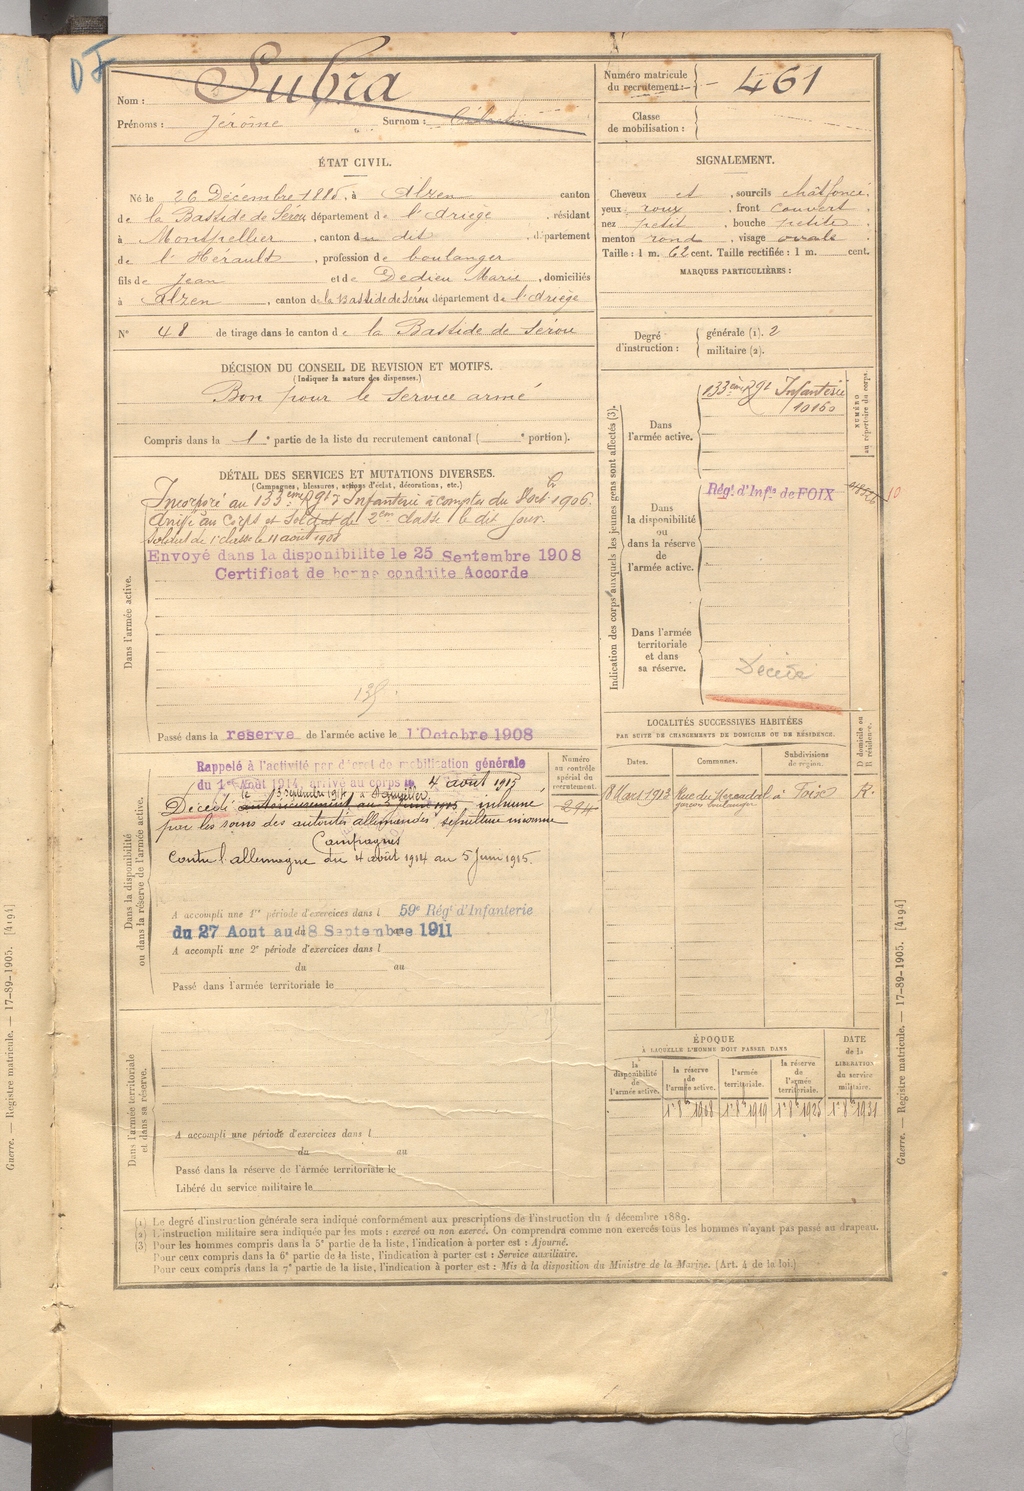 Nom : Subra
Prénoms : Jérôme Surnom :
Numéro matricule du recrutement : 461
Classe de mobilisation :
ÉTAT CIVIL.
Né le 26 Décembre 1885, à Alzen canton
de la Bastide de Sérou département de l'Ariège, résidant
à Montpellier, canton du dit, département
de l'Hérault, profession de boulanger
fils de Jean et de Dedieu Marie, domiciliés
à Alzen, canton de la Bastide de Sérou département de l'Ariège
N° 48 de tirage dans le canton de la Bastide de Sérou
SIGNALEMENT.
Cheveux et, sourcils chât foncé,
yeux roux, front couvert
nez petit, bouche petite
menton rond, visage ovale
Taille : 1 m. 62 cent. Taille rectifiée : 1 m. cent.
MARQUES PARTICULIÈRES :
Degré d'instruction : générale (1). 2
militaire (2).
DÉCISION DU CONSEIL DE REVISION ET MOTIFS.
(Indiquer la nature des dispenses.)
Bon pour le service armé
Compris dans la 1e partie de la liste du recrutement cantonal ( e portion).
DÉTAIL DES SERVICES ET MUTATIONS DIVERSES.
(Campagnes, blessures, actions d'éclat, décorations, etc.)
Dans l'armée active.
Incorporé au 133ème Rgt d'Infanterie à compter du 8 octbre 1906.
Arrivé au Corps et Soldat de 2ème classe le dit jour.
Soldat de 1e classe le 11 août 1908
Envoyé dans la disponibilité le 25 Septembre 1908
Certificat de bonne conduite Accordé
Passé dans la réserve de l'armée active le 1 Octobre 1908
Indication des corps auxquels les jeunes gens sont affectés (3).
NUMÉRO au répertoire du corps.
Dans l'armée active.
133ème Rgt Infanterie
10160
Dans la disponibilité ou dans la réserve de l'armée active.
Rég. d'Infie de FOIX
10
Dans l'armée territoriale et dans sa réserve.
Décédé
Dans la disponibilité ou dans la réserve de l'armée active.
Numéro au contrôle spécial du recrutement.
294
Rappelé à l'activité par décret de mobilisation générale
du 1er Août 1914, arrivé au corps le 4 août 1915
le 13 septembre 1914 à
Décédé antérieurement au 5 Juin 1915, inhumé
par les soins des autorités allemandes sépulture inconnue
Campagnes
Contre l'allemagne du 4 août 1914 au 5 Juin 1915.
A accompli une 1re période d'exercices dans l 59e Régt d'Infanterie
du 27 Aout au 8 Septembre 1911
A accompli une 2e période d'exercices dans l
du au
Passé dans l'armée territoriale le
LOCALITÉS SUCCESSIVES HABITÉES
PAR SUITE DE CHANGEMENTS DE DOMICILE OU DE RÉSIDENCE.
Dates. Communes. Subdivisions de région. D domicile ou R résidence.
8 Mars 1913 Rue du à Foix R.
garçon boulanger
Dans l'armée territoriale et dans sa réserve.
A accompli une période d'exercices dans l
du au
Passé dans la réserve de l'armée territoriale le
Libéré du service militaire le
ÉPOQUE
À LAQUELLE L'HOMME DOIT PASSER DANS
la disponibilité de l'armée active. la réserve de l'armée active. l'armée territoriale. la réserve de l'armée territoriale. DATE de la LIBÉRATION du service militaire.
1er 8bre 1908 1er 8bre 1919 1er 8bre 1925 1er 8bre 1931
(1) Le degré d'instruction générale sera indiqué conformément aux prescriptions de l'instruction du 4 décembre 1889.
(2) L'instruction militaire sera indiquée par les mots : exercé ou non exercé. On comprendra comme non exercés tous les hommes n'ayant pas passé au drapeau.
(3) Pour les hommes compris dans la 5e partie de la liste, l'indication à porter est : Ajourné.
Pour ceux compris dans la 6e partie de la liste, l'indication à porter est : Service auxiliaire.
Pour ceux compris dans la 7e partie de la liste, l'indication à porter est : Mis à la disposition du Ministre de la Marine. (Art. 4 de la loi.)
Guerre. — Registre matricule. — 17-89-1905. [4194]
Guerre. — Registre matricule. — 17-89-1905. [4194]